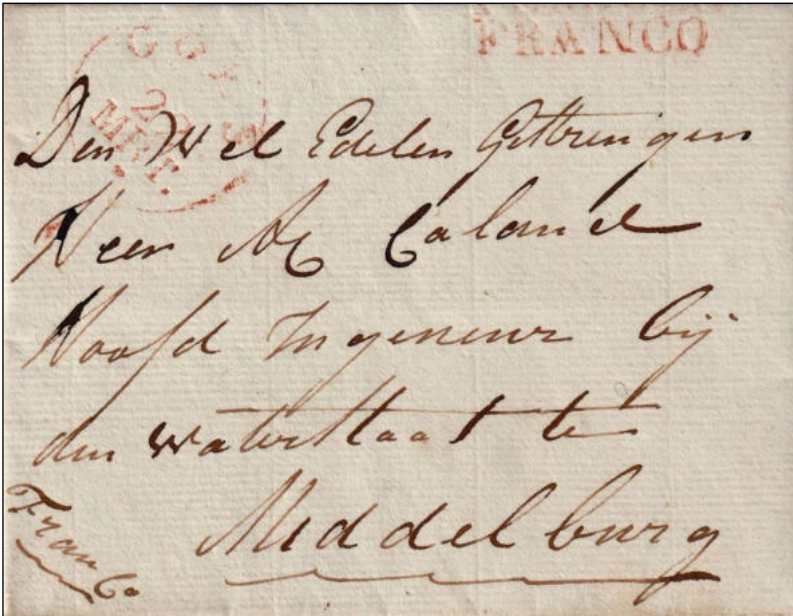 FRANCO
Den Wel Edelen Gestrengen
Heer Caland
Hoofd Ingeneur bij
den waterstaat te
Middelburg
Franco